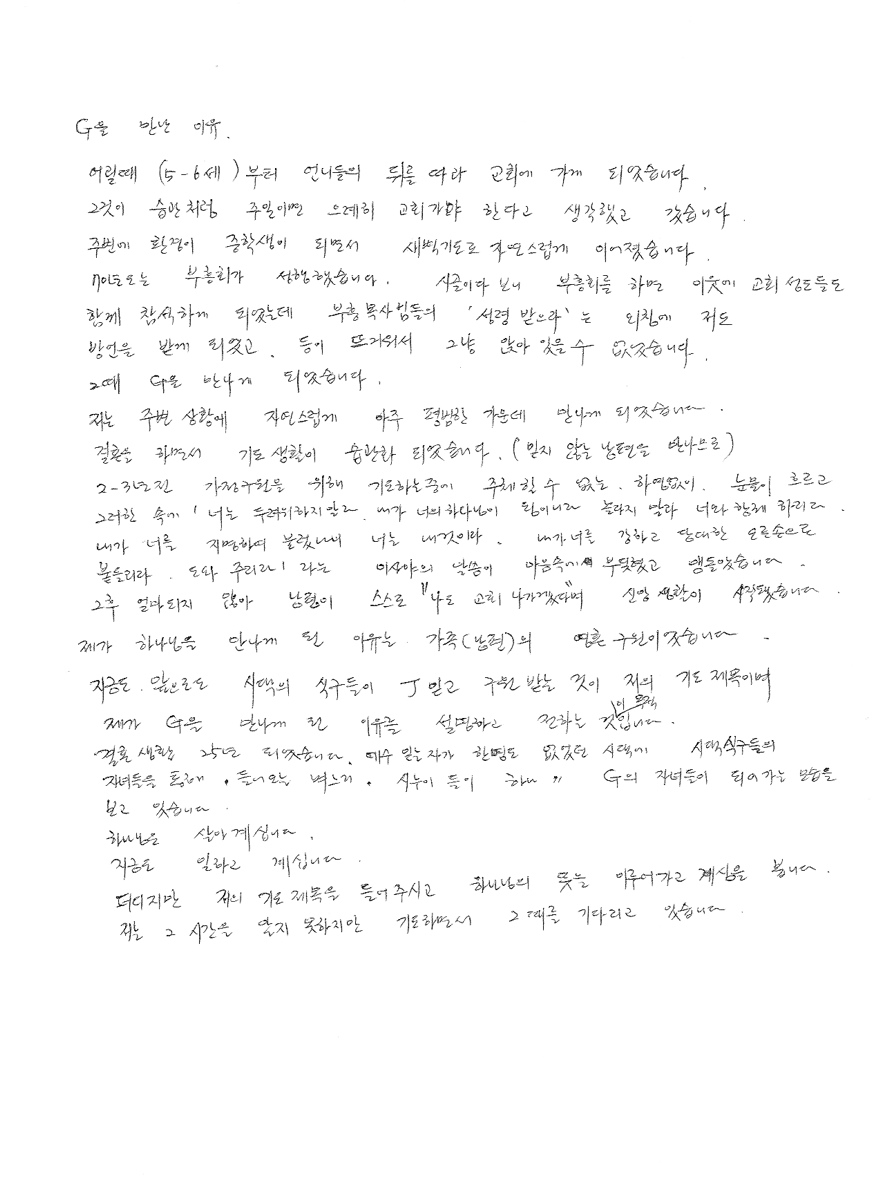 G을 만난 이유.
어릴때 (5-6세)부터 언니들의 뒤를 따라 교회에 가게 되었습니다.
그것이 습관처럼 주일이면 으레히 교회가야 한다고 생각했고 갔습니다.
주변에 환경이 중학생이 되면서 새벽기도로 자연스럽게 이어졌습니다.
70년도는 부흥회가 성행했습니다. 시골이다 보니 부흥회를 하면 이웃에 교회 성도들도
함께 참석하게 되었는데 부흥목사님들의 '성령 받으라'는 외침에 저도
방언을 받게 되었고, 등이 뜨거워서 그냥 앉아 있을 수 없었습니다.
그때 G을 만나게 되었습니다.
저는 주변 상황에 자연스럽게 아주 평범한 가운데 만나게 되었습니다.
결혼을 하면서 기도 생활이 습관화 되었습니다. (믿지 않는 남편을 만나므로)
2-3년전 가정구원을 위해 기도하는중에 주체할 수 없는, 하염없이, 눈물이 흐르고
그러한 속에 '너는 두려워하지말라, 내가 너의하나님이 됨이니라 놀라지 말라 너와 함께 하리라.
내가 너를 지명하여 불렀나니 너는 내것이라. 내가너를 강하고 담대한 오른손으로
붙들리라. 도와 주리라' 라는 이사야의 말씀이 마음속에서 부딪혔고 맴돌았습니다.
그후 얼마되지 않아 남편이 스스로 "나도 교회 나가겠다"며 신앙 생활이 시작됐습니다.
제가 하나님을 만나게 된 이유는 가족(남편)의 영혼 구원이었습니다.
지금도, 앞으로도 시댁의 식구들이 J 믿고 구원 받는 것이 저의 기도 제목이며
제가 G을 만나게 된 이유를 설명하고 전하는 것이 목적입니다.
결혼 생활 25년 되었습니다. 예수 믿는자가 한명도 없었던 시댁에 시댁식구들의
자녀들을 통해, 들어오는 며느리, 시누이 들이 하나 〃 G의 자녀들이 되어가는 모습을
보고 있습니다.
하나님은 살아계십니다.
지금도 일하고 계십니다.
더디지만 저의 기도 제목을 들어주시고 하나님의 뜻을 이루어가고 계심을 봅니다.
저는 그 시간을 알지 못하지만 기도하면서 그 때를 기다리고 있습니다.